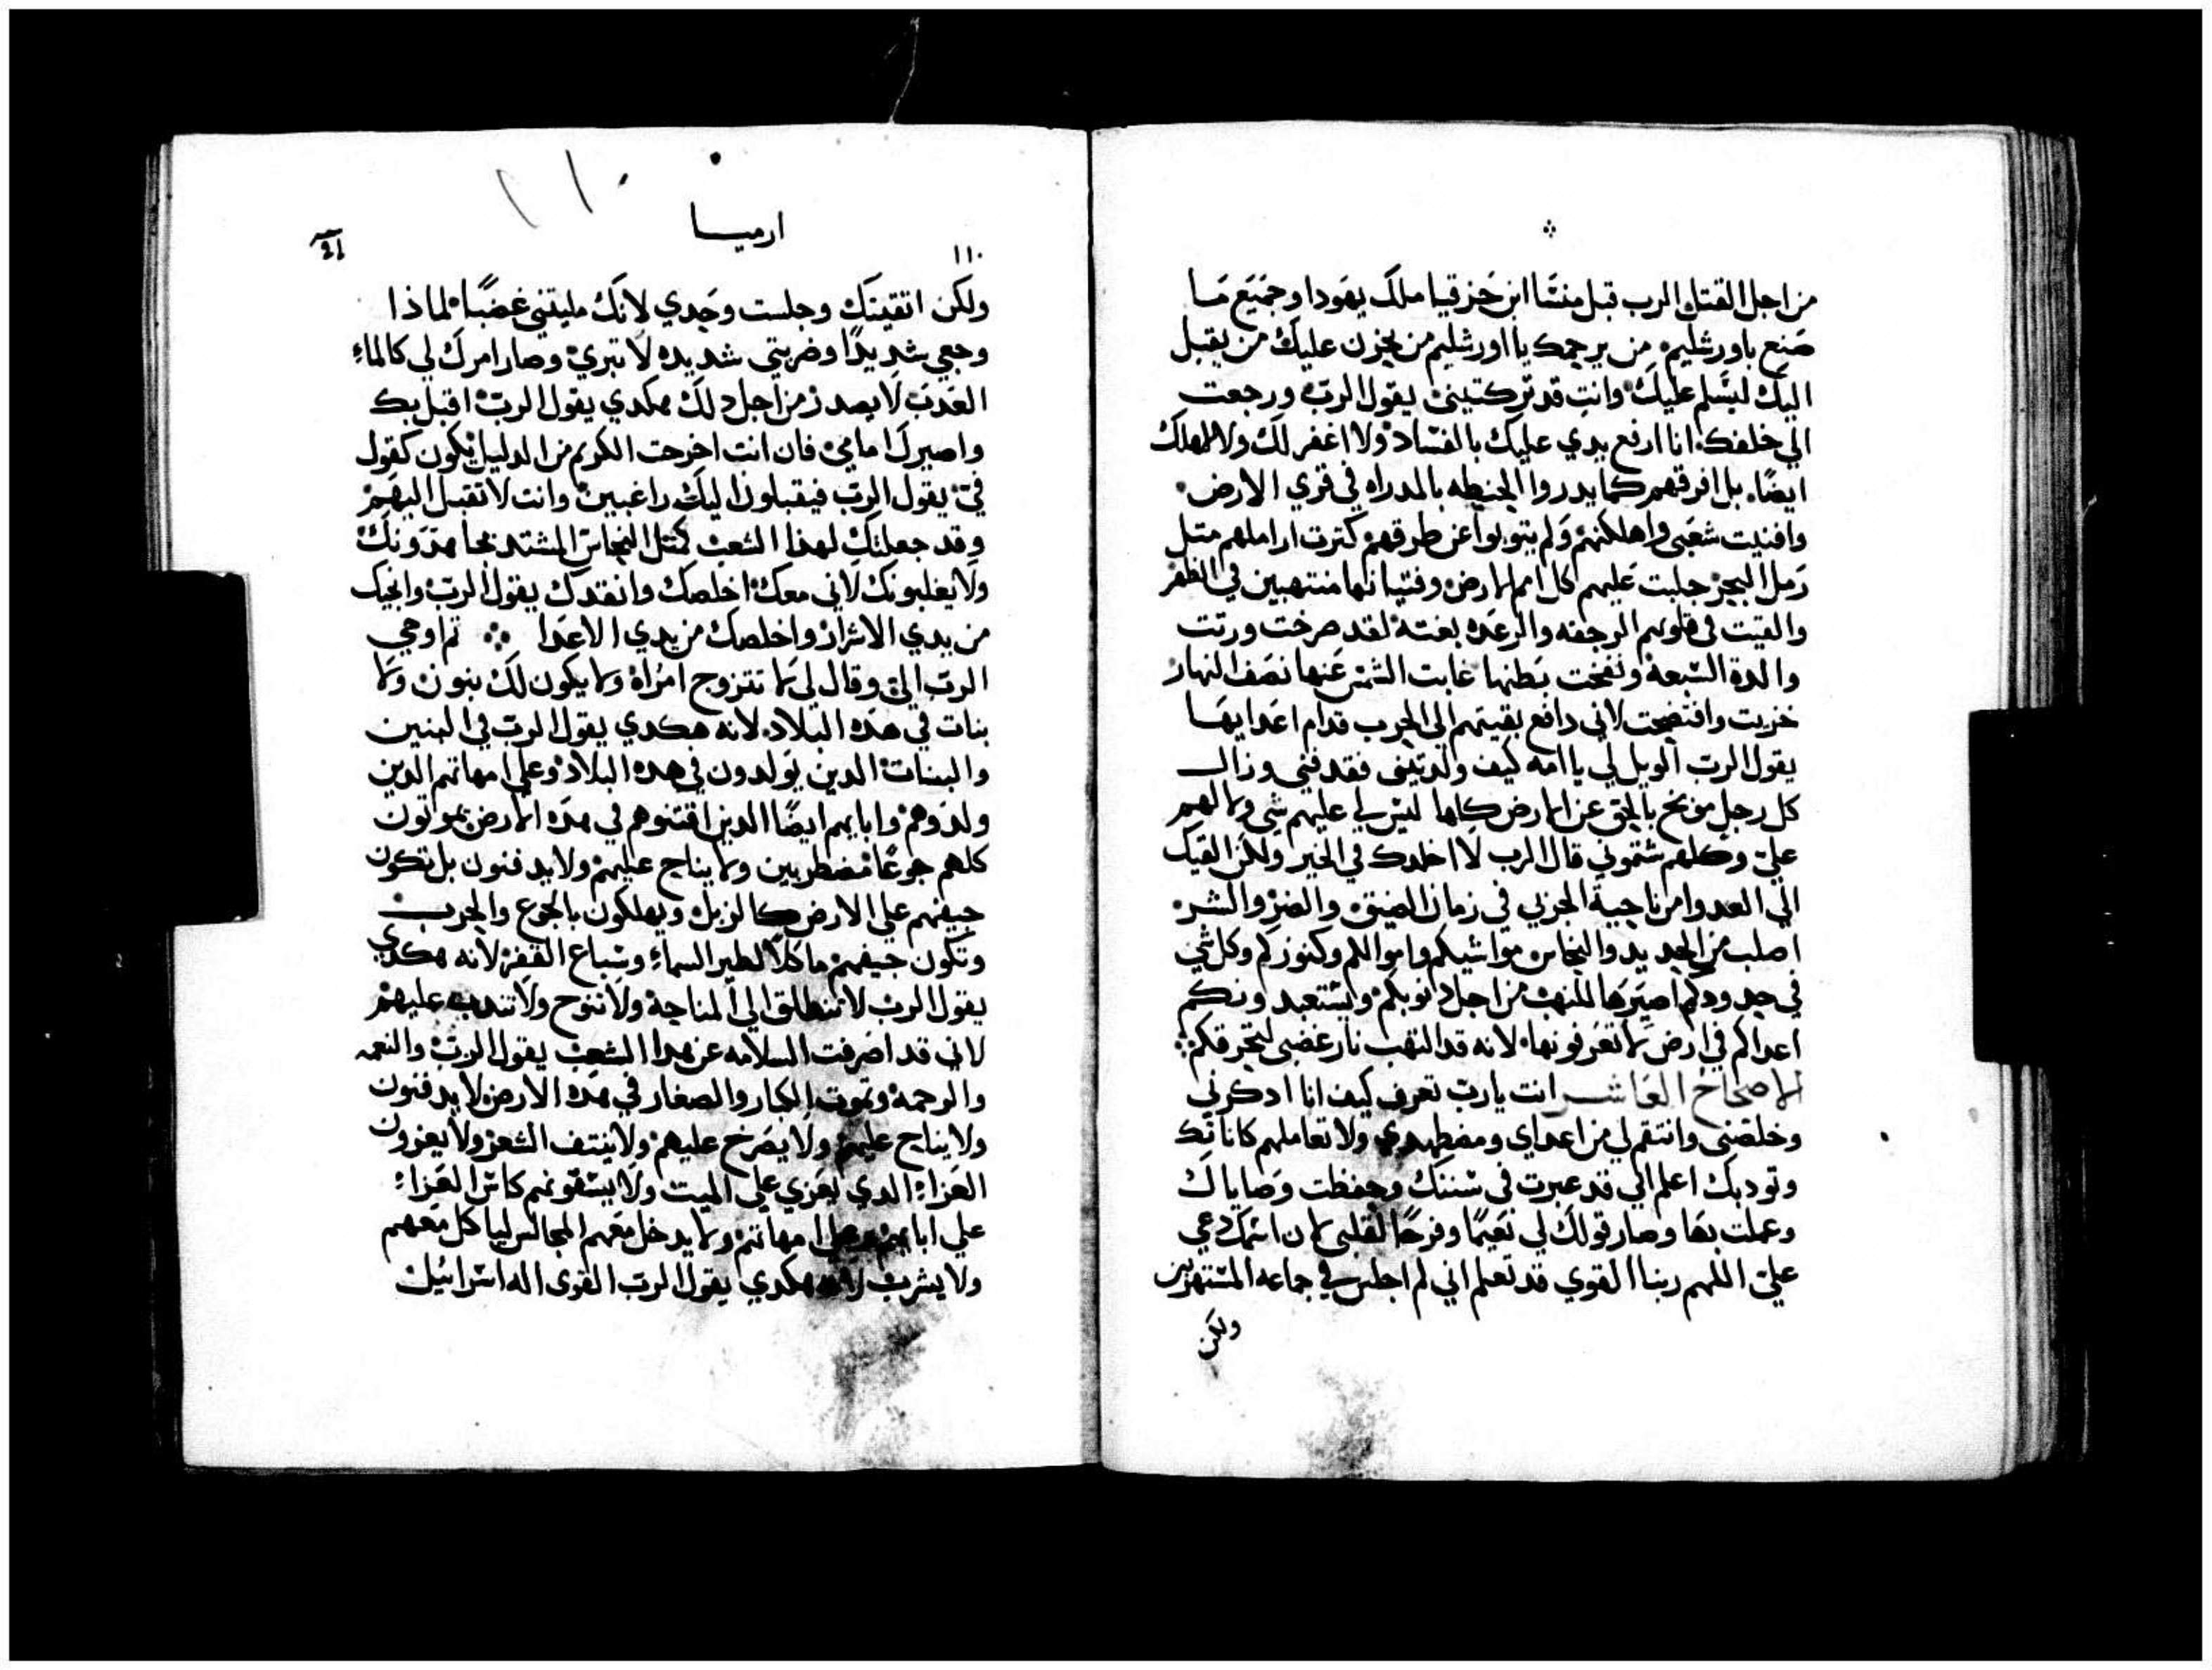 من اجل القتل الرب قبل منسَّا ابن حَزقيا ملكَ يهَودا وجَميَع مَا
صَنع باورشليم. من يرحمك يا اورشليم من يحزن عليك من يقبل
اليك ليسَلم عليك وانتِ قد تركتينى يقول الربّ ورجعت
الي خلفك. انا ارفع يدي عليك بالفسَاد ولا اغفر لك ولا امهلك
ايضًا. بل افرقهم كما يدروا الحنطه بالمدراه في قري الارض.
وافنيت شعَبي واهلكتهم وَلم يتوبوا عن طرقهم كترت اراملهم متل
رَمل البحر جلبت عَليهم كل امم الارض وفتيانها منتهبين في الظهر
والقيَت في قلوبهم الرجفه والرعَده بغتة لقد صرخت ورتت
والدة السَّبعة ونفخت بَطنها غابت الشمَس عَنها نصَف النهار
خزيت وافتضحت لاني دافع بقيتهم الي الحرب قدام اعَدايهَا
يقول الرب الويل لي يا امه كيف ولدتيني فقد فني وزال
كل رجل موبخ بالحق عن الارض كلها ليس لي عليهم شي ولا لهم
عليّ وكلهم شتموني قال الرب لا اخلدك في الخير ولكن القيك
الي العدوا من ناحية الحزبي في زمان الضيق والضر والشر
اصلب من الحديد والنحاس مواشيكم واموالكم وكنوزكم وكل شي
في حدودكم اصيّرهَا للنهب من اجل دنوبكم ويستعبدونكم
اعداكم في ارض لا تعَرفونها. لانه قد التهب نار غضبي لتحرقكم
الاصحاح العَاشر انت يارب تعرف كيف انا ادكرني
وخلصَني وانتقم لي من اعداي ومضطهدي ولا تعاملهم كاناتك
وتودبك اعلم اني قد عبرت في سَننك وحفظت وَصاياك
وعملت بهَا وصار قولك لي نَعيمًا وفرحًا لقلبي لان اسَمك دعي
عليّ اللهم ربنا القوي قد تعلم اني لم اجلس في جماعه المستهزين
ولكن
ارميا
١١٠
ولكن اتقيتك وجلست وحَدي لانك مليتني غضبًا لماذا
وجعي شديدًا وضربتي شديده لا تبري وصار امرك لي كالماء
العَدب لا يصدر من اجل دلك هكدي يقول الربّ اقبل بك
واصيرك امامي فان انت اخرجت الكريم من الدليل يكون كقول
فيّ يقول الربّ فيقبلون اليك راغبين وانت لا تقبل اليهَم
وقد جعلتك لهذا الشعب كتل النحاسّ المشتد يحاهدونك
ولا يغلبونك لاني معك اخلصك وانقدك يقول الربّ وانجيك
من يدي الاشرار واخلصك من يدي الاعَدا ثم اوحي
الربّ اليّ وقال لي لا تتزوج امرُاة ولا يكون لك بنون ولا
بنات في هَده البلاد لانه هكدي يقول الربّ في البنين
والبنات الدين يوَلدون في هده البلاد وعلي امهاتهم الدين
ولدَوهم وابايهم ايضًا الدين اقتنوهم في هدَه الارض يموتون
كلهم جوعًا مضطربين ولا يناح عليهم ولا يدفنون بل تكون
جيفهم علي الارض كالزبل ويهلكون بالجوع والحرب
وتكون جيفهم ماكلاً لطير السماء وسّباع القفر لانه هكدي
يقول الرب لا تنطلق الي المناحة ولا تنوح ولا تندب عليهم
لاني قد اصَرفت السلامه عن هدا الشعب يقول الربّ والنعمه
والرحمة وتموت الكبار والصغار في هدَه الارض لا يدفنون
ولا يناح عليهم ولا يصَرخ عليهم ولا ينتف الشعر ولا يعزون
العَزاء الدي يعَزي علي الميت ولا يسَقونهم كاسّ العَزاء
علي ابايهم وعلي امهاتهم ولا يدخل معَهم المجالس لياكل معَهم
ولا يشرب لانه هكدي يقول الرب القوى اله اسَراييل